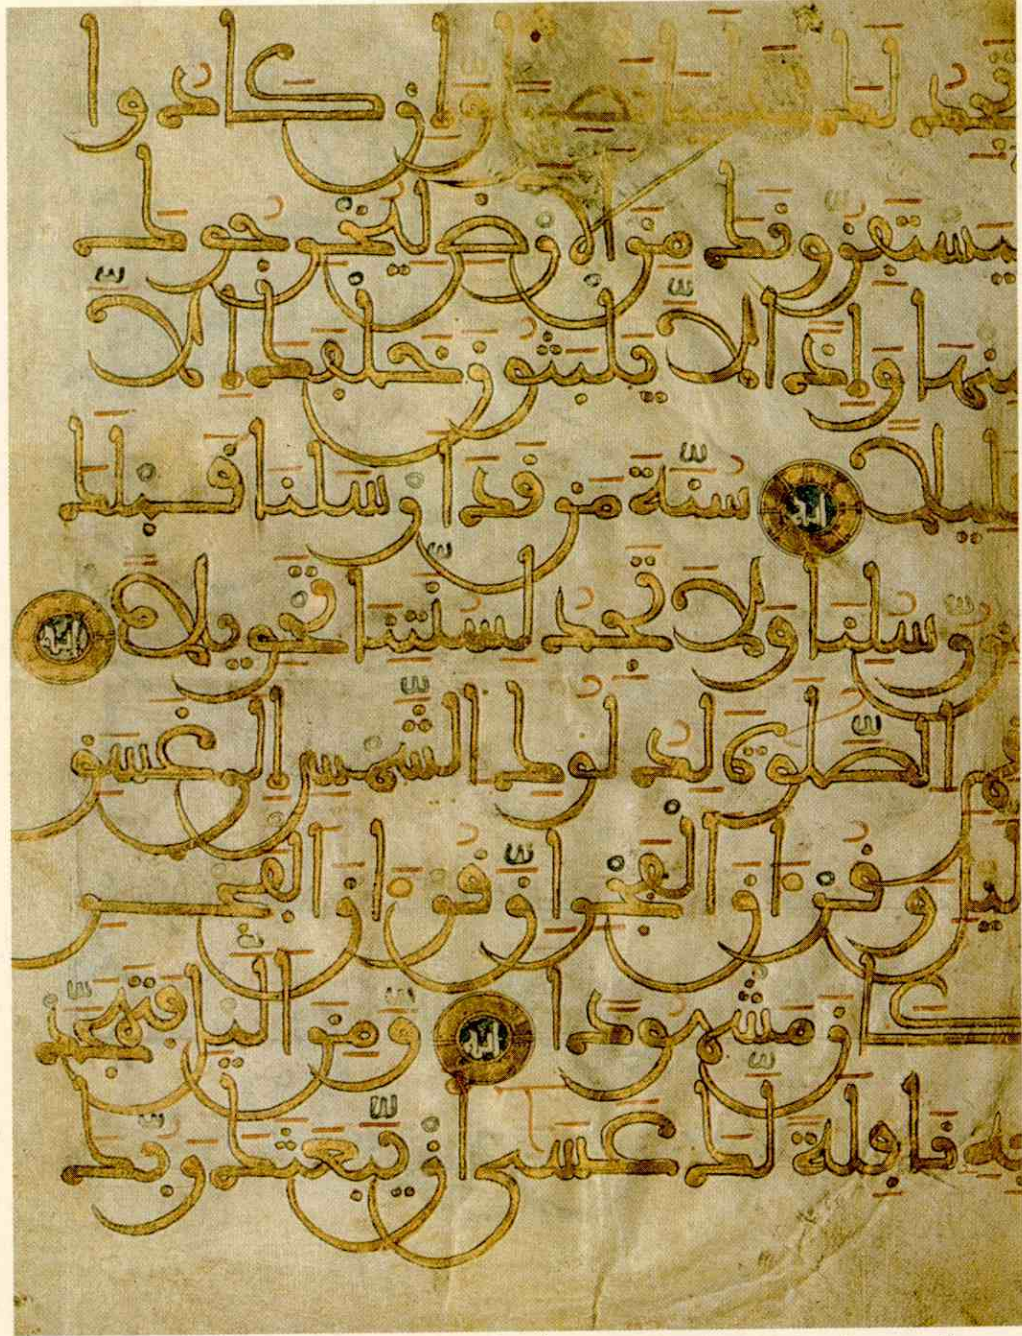 تجد لك علينا نصيرا وإن كادوا
ليستفزونك من الارض ليخرجوك
منها وإذا لا يلبثون خلفك إلا
قليلا اية سنة من قد ارسلنا قبلك
من رسلنا ولا تجد لسنتنا تحويلا اية
أقم الصلوة لدلوك الشمس إلى غسق
اليل وقرءان الفجر إن قرءان الفجر
كان مشهودا اية ومن اليل فتهجد
به نافلة لك عسى أن يبعثك ربك